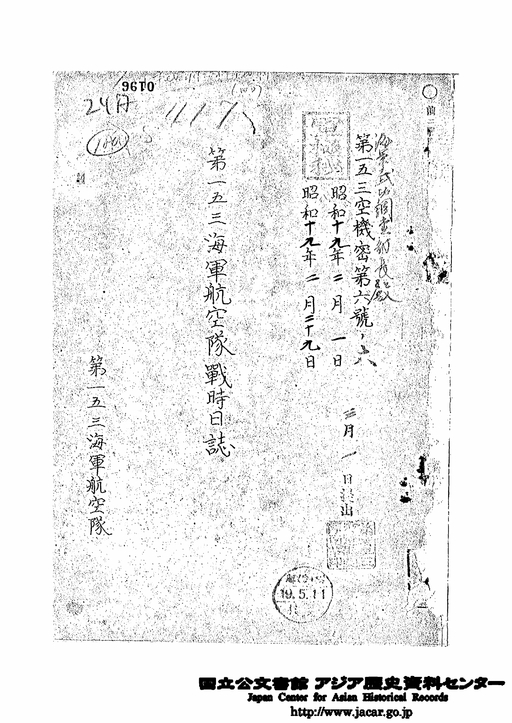 0196
24A
海軍武功調査部長殿
第一五三空機密第六號ノ六
昭和十九年二月一日
昭和十九年二月二十九日
三月一日提出
軍極秘
第一五三海軍航空隊戰時日誌
第一五三海軍航空隊
19.5.11
国立公文書館 アジア歴史資料センター
Japan Center for Asian Historical Records
http://www.jacar.go.jp